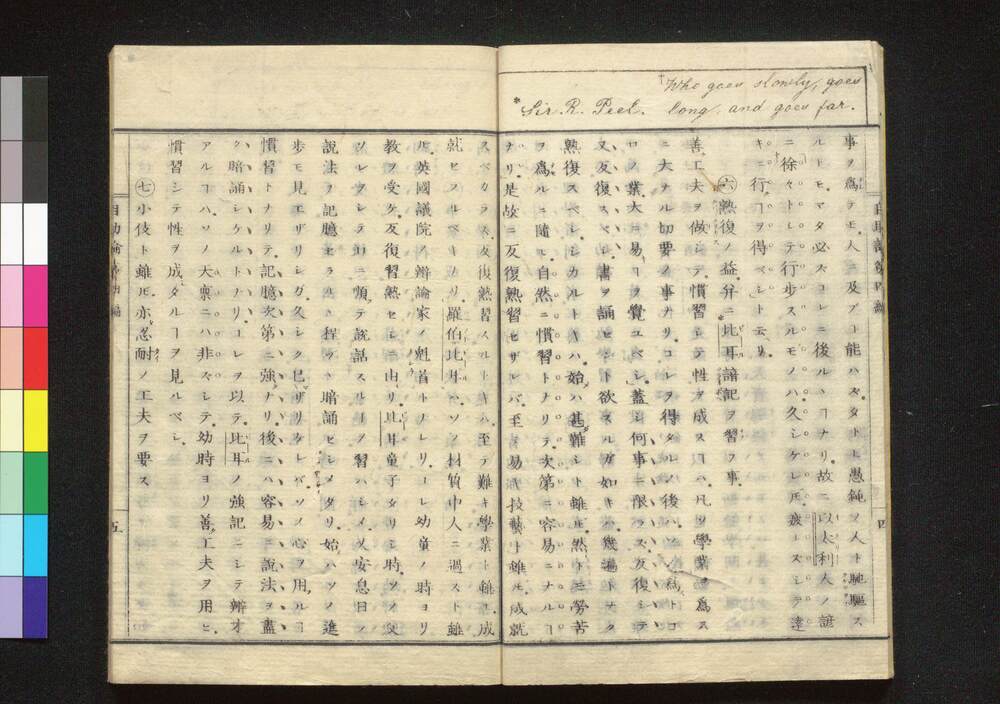 †Who goes slowly, goes
long, and goes far.
*Sir. R. Peel.
事ヲ爲テモ人ニ及ブヿ能ハズタトヒ愚鈍ノ人ト馳驅ス
ルトモマタ必ズコレニ後ルヽヿナリ故ニ以太利人ノ諺
ニ徐々トシテ行步スルモノハ久シケレ𪜈疲ズシテ遠
キニ行ヿヲ得ベシト云リ
㊅熟復ノ益并ニ比耳諳記ヲ習フ事
善工夫ヲ做シテ慣習シテ性ヲ成スヿハ凡ソ學業ヲ爲ス
ニ大ナル切要ノ事ナリコレヲ得タルノ後ハソノ爲トコ
ロノ業大ニ易ヿヲ覺ユベシ蓋シ何事ニ限ラズ反復シテ
又反復スベシ書ヲ誦セント欲スル方如キハ幾遍トナク
熟復スベシシカルトキハ始ハ甚難シト雖𪜈然トニ勞苦
ヲ爲ルニ隨テ自然ニ慣習トナリテ次第ニ容易ニナルヿ
ナリ是故ニ反復熟習セザレバ至テ易キ技藝ト雖𪜈成就
スベカラズ反復熟習スルトキハ至テ難キ學業ト雖𪜈成
就セラルベキナリ羅伯比耳ハソノ材質中人ニ過ズト雖
𪜈英國議院ノ辯論家ノ魁首トナレリコレ幼童ノ時ヨリ
教ヲ受ケ反復習熟セシニ由リ比耳童子タリシ時ソノ父
ソレヲシテ口ニ願テ談話スルヿヲ習ハシメ又安息日ノ
說法ヲ記臆セラルヽ程ヅヽ暗誦セシメタリ始ハソノ進
步モ見エザリシガ久シク已ザリケレバソノ心ヲ用ルヿ
慣習トナリテ記臆次第ニ強ナリ後ニハ容易ニ說法ヲ盡
ク暗誦シケルトナリコレヲ以テ比耳ノ強記ニシテ辯才
アルヿハソノ天稟ニハ非ズシテ幼時ヨリ善工夫ヲ用ヒ
慣習シテ性ヲ成タルヿヲ見ルベシ
㊆小伎ト雖𪜈亦忍耐ノ工夫ヲ要ス
五